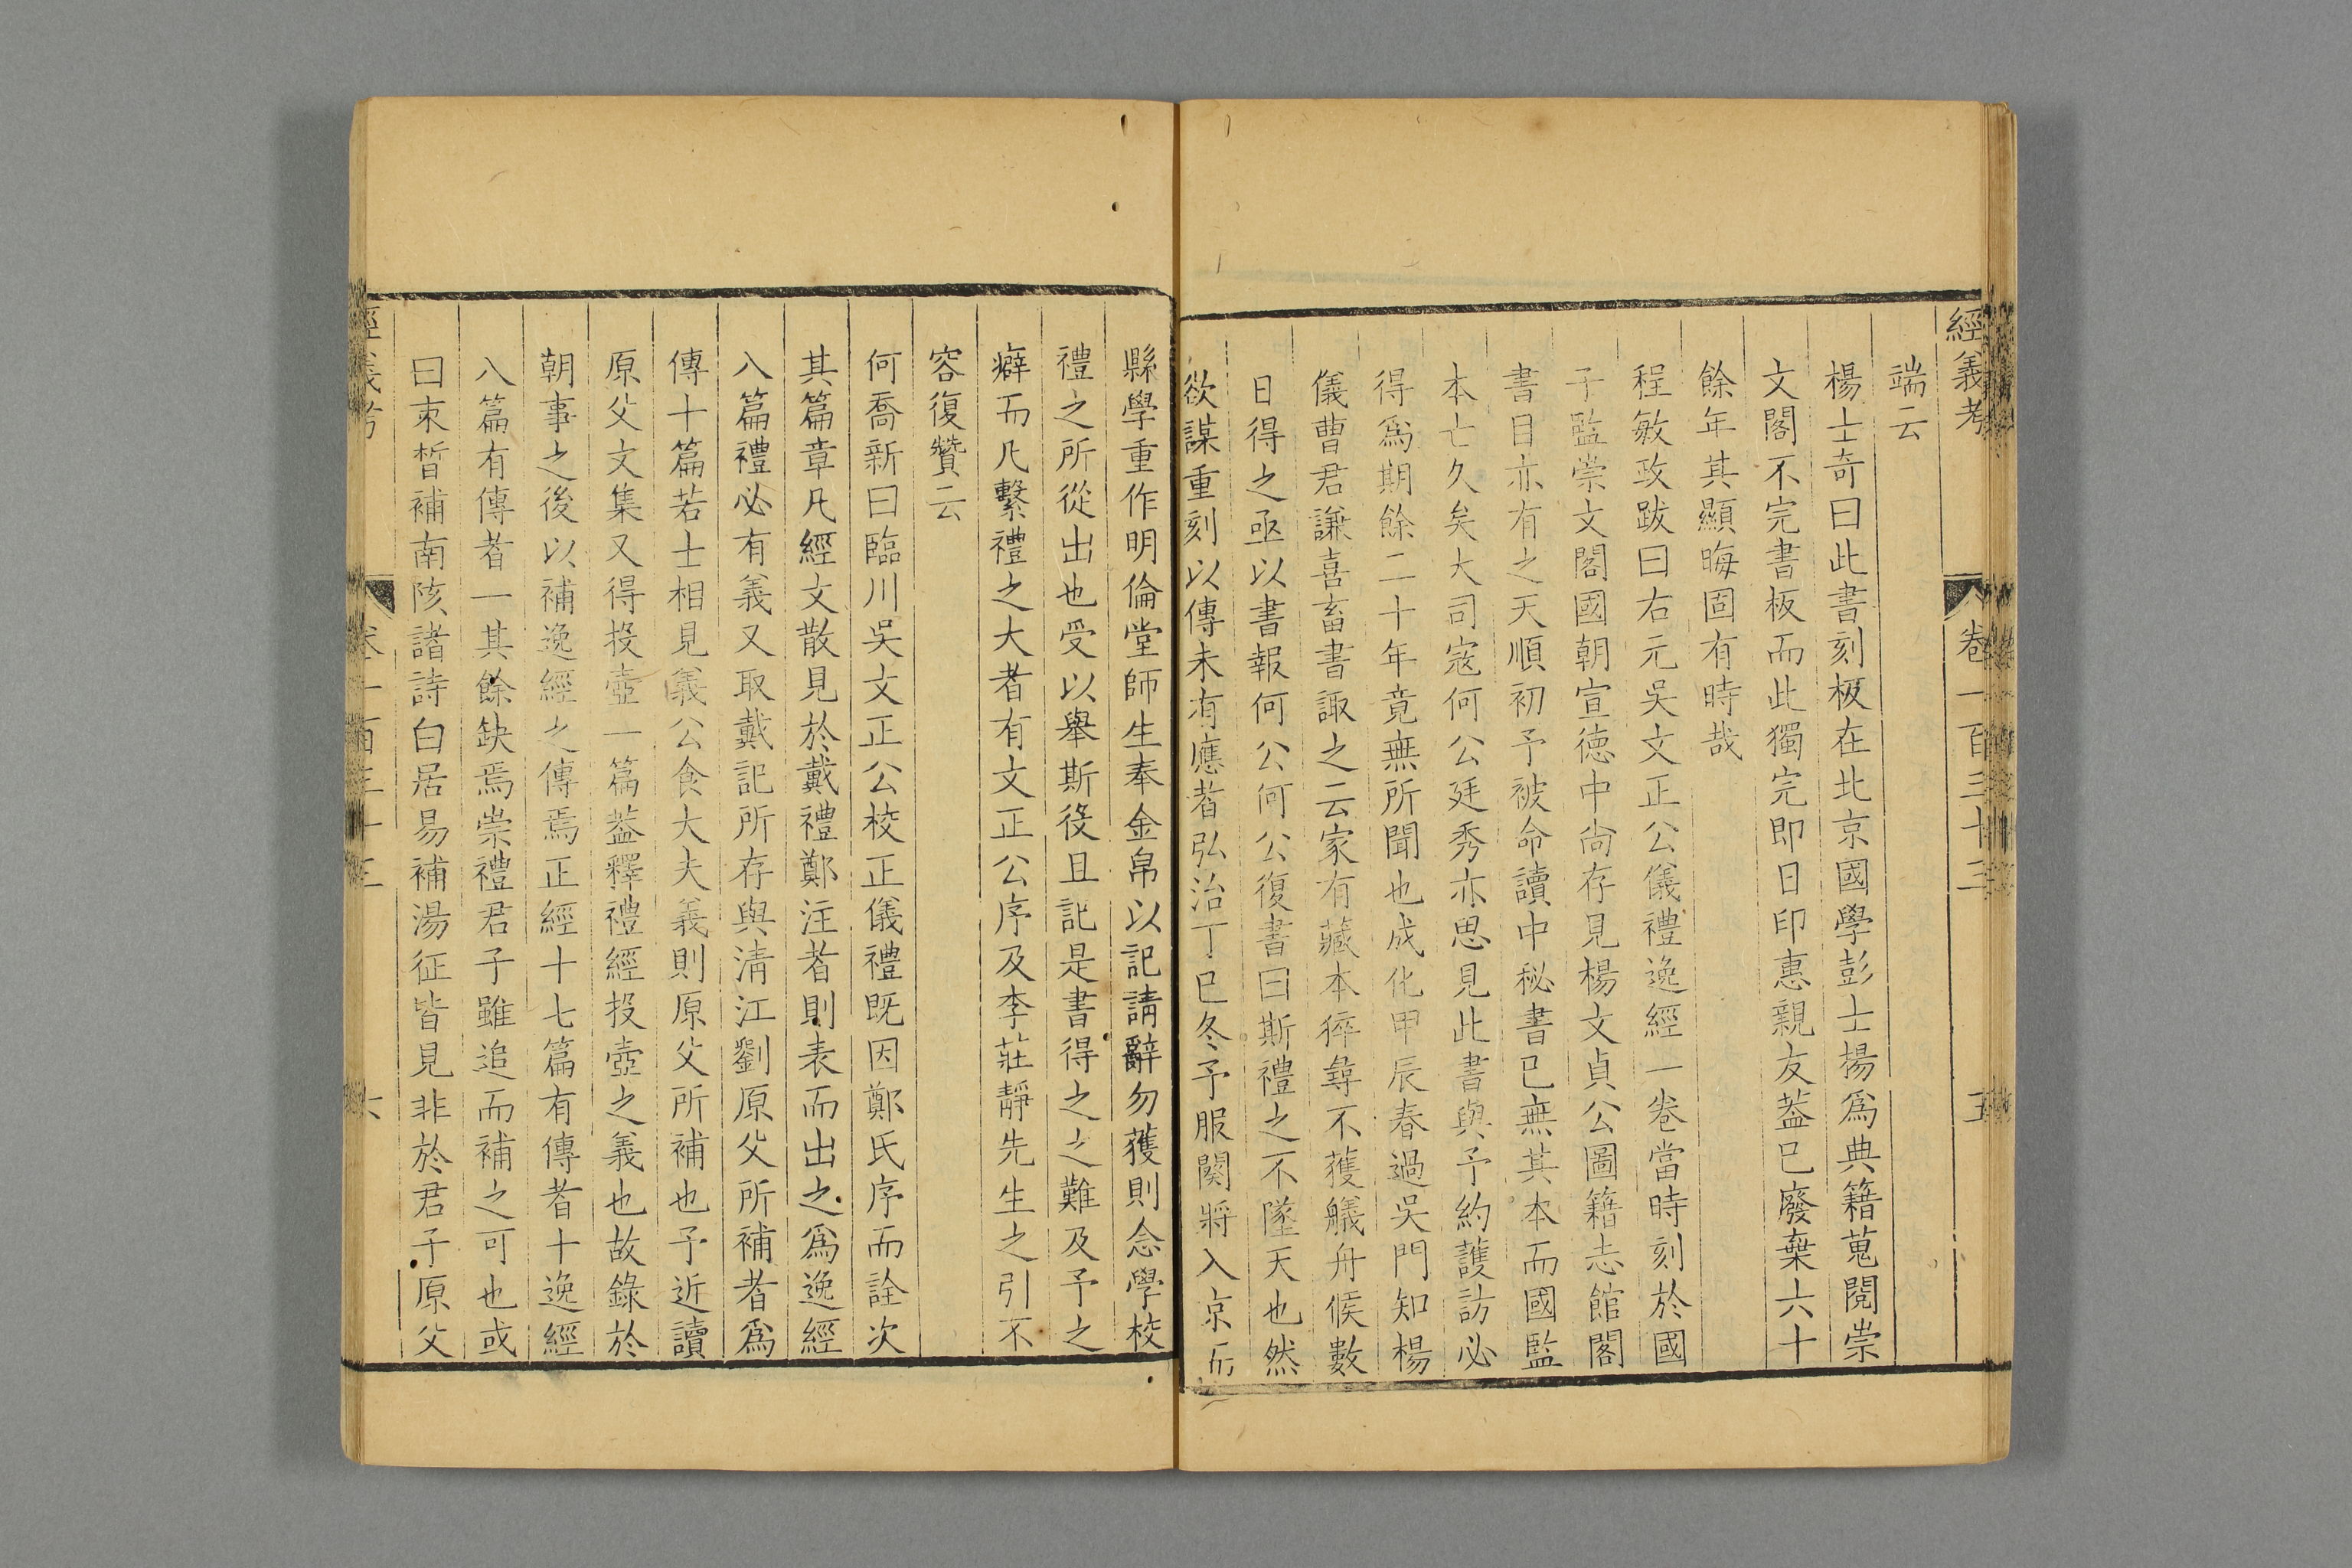 經義考 卷一百三十三 五
端云
楊士奇曰此書刻板在北京國學彭士揚爲典籍蒐閱崇
文閣不完書板而此獨完即日印惠親友葢已廢棄六十
餘年其顯晦固有時哉
程敏政跋曰右元吳文正公儀禮逸經一卷當時刻於國
子監崇文閣國朝宣徳中尙存見楊文貞公圖籍志館閣
書目亦有之天順初予被命讀中秘書已無其本而國監
本亡久矣大司寇何公廷秀亦思見此書與予約護訪必
得爲期餘二十年竟無所聞也成化甲辰春過吳門知楊
儀曹君謙喜畜書諏之云家有藏本猝尋不獲艤舟候數
日得之亟以書報何公何公復書曰斯禮之不墜天也然
欲謀重刻以傳未有應者弘治丁巳冬予服闋將入京
縣學重作明倫堂師生奉金帛以記請辭勿獲則念學校
禮之所從出也受以舉斯役且記是書得之之難及予之
癖而凡繫禮之大者有文正公序及李莊靜先生之引不
容復贊云
何喬新曰臨川吳文正公校正儀禮既因鄭氏序而詮次
其篇章凡經文散見於戴禮鄭注者則表而出之爲逸經
八篇禮必有義又取戴記所存與清江劉原父所補者爲
傳十篇若士相見義公食大夫義則原父所補也予近讀
原父文集又得投壺一篇葢釋禮經投壺之義也故錄於
朝事之後以補逸經之傳焉正經十七篇有傳者十逸經
八篇有傳者一其餘缺焉崇禮君子雖追而補之可也或
曰朿晳補南陔諸詩白居易補湯征皆見非於君子原父
經義考 卷一百三十三 六